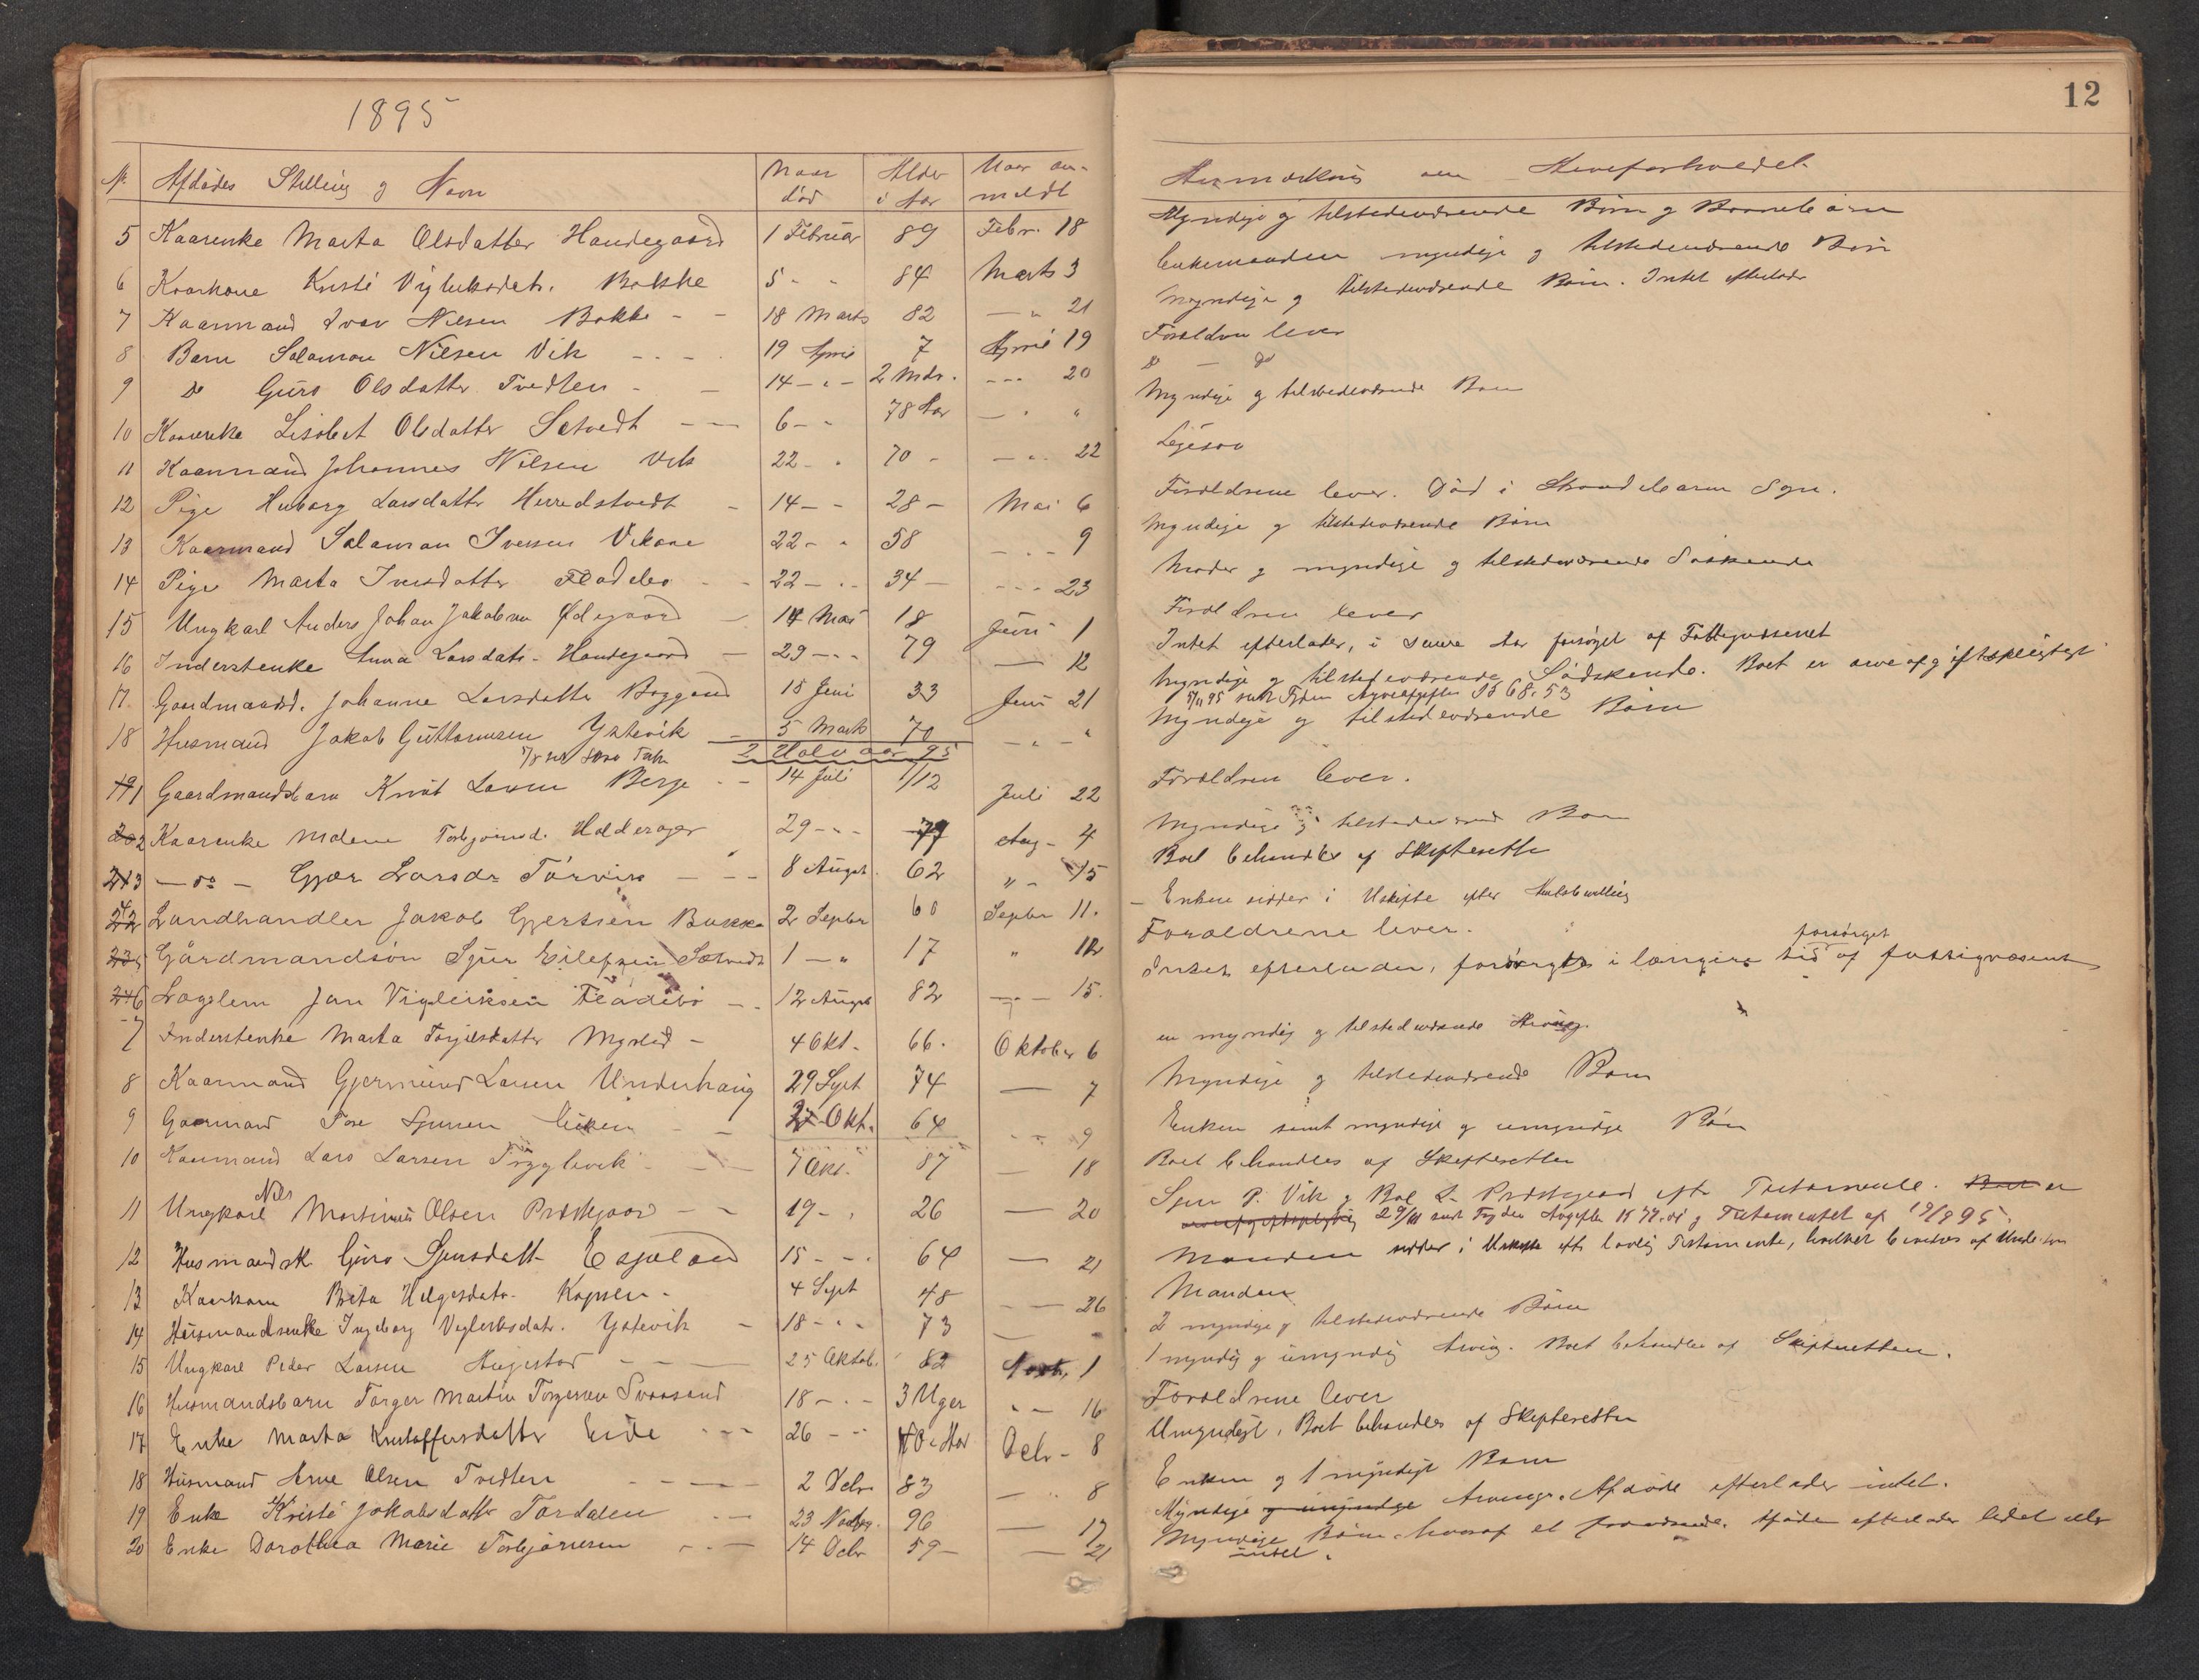 12
1895
No. Afdødes Stilling og Navn Naar død Alder i Aar Naar anmeldt Anmærkning om Arveforholdet
5 Kaarenke Marta Olsdatter Handegaard 1 Februar 89 Febr. 18 Myndige og tilstedeværende Børn og Børnebørn
6 Kaarkone Kristi Vigleiksdatr. Bakke 5 " " 84 Marts 3 Enkemanden myndige og tilstedeværende Børn
7 Kaarmand Ivar Nilsen Bakke - - 18 Marts 82 — " 21 Myndige og tilstedeværende Børn. Intet efterlader
8 Barn Salamon Nilsen Vik - - - 19 April 7 April 19 Forældren lever
9 Do Guro Olsdatter Tvedten - - 14 - " - 2 Mdr. - - - 20 Do — Do
10 Kaarenke Lisabet Olsdatter Sætvedt - — 6 - " 78 Aar — " " Myndige og tilstedeværende Børn
11 Kaarmand Johannes Nilsen Vik 22 - " 70 - — " - 22
12 Pige Larsdatter - 14 - - 28 - Mai 6 Forældrene lever. Død i Strandebarm Sogn.
13 Kaarmand Salamon Iversen Vikane 22 - " 58 — - - 9 Myndige og tilstedeværende Børn
14 Pige Marta Iversdatter Fladebø - - 22 - - - 34 - - - - 23 Moder og myndige og tilstedeværende Søskende
15 Ungkarl Anders Johan Jakobsen Ødegaard - 14 Mai 18 Juni 1 Forældren lever
16 Inderstenke Anna Larsdatr. Handegaard - 29 - - - 79 — 12 Intet efterlader, i senere Aar forsørget af Fattigvæsenet
17. Gaardmandsd. Johanne Larsdatter 15 Juni 33 Juni 21 Myndige og tilstedeværende Sødskende. Boet er arveafgiftspligtigt
5/11 95 Arveafgiften 68.53
18 Husmand Jakob Guttormsen Ystevik - 5 Marts 70 — " - " Myndige og tilstedeværende Børn
2 Halvaar 95
1 Gaardmandsbarn Knut Larsen Berge - - 14 Juli 1/12 Juli 22 Forældren lever.
2 Kaarenke Malene Torbjørnsd. Holderager 29 - - - 77 Aug - 4 Myndige og tilstedeværende Børn
3 — do — Larsdr Tørvik — - - 8 August. 62 " - 15 Boet behandles af Skifteretten
4 Landhandler Jakob Gjertsen Bakke 2 Septbr 60 Septbr 11. - Enken sidder i Uskifte efter
5 Gårdmandsøn Sjur Eilefsen Sætvedt 1 - " 17 " 12 Foraeldrene lever.
6 Lægslem Jan Vigleiksen Fladebø - - 12 August 82 — " - 15. Intet efterlader, forsørget i længere tid af fattigvæsenet
7 Inderstenke Marta Torgilsdatter - 4 Okt. 66. Oktober 6 en myndig og tilstedeværende Arving.
8 Kaarmand Gjermund Larsen Underhaug 29 Sept 74 — 7 Myndige og tilstedeværende Børn
9 Gaarmand Tore Sjursen - - Okt. 64 - - 9 Enken samt myndige og umyndige Børn
10 Kaarmand Lars Larsen Tryglevik - - — 7 Okt. 87 — 18 Boet behandles af Skifteretten
11 Ungkarl Nils Martinus Olsen Præstgaard - - 19 - " 26 — 20 Sjur P. Vik og Præstegaard efter Testamente. Boet er
arveafgiftspligtig 29/11 og Testamentet af 19/9 95.
12 Husmandsk. Guro Sjursdatt. 15 - - - 64 — 21 Manden sidder i Uskifte efter lovlig Testamente, hvilket bevises af
13 Kaarkone Brita Helgesdatr. - 4 Sept 48 - — 26 Manden
14 Husmandsenke Ingeborg Vigleiksdatr. Ystevik - 18 - - - 73 — " 2 myndige og tilstedeværende Børn
15 Ungkarl Peder Larsen - - — 25 Oktob. 82 1 1 myndig og umyndig Arving. Boet behandles af Skifteretten.
16 Husmandsbarn Torger Martin Torgersen Svaasand 18 - - - 3 Uger " - 16 Forældrene lever
17 Enke Marta Kristoffersdatter Eide - - - 26 - - 40 Aar Decbr - 8 Umyndigt, Boet behandles af Skifteretten
18 Husmand Arne Olsen Tvedten - - — 2 Decbr 83 — " 8 Enken og 1 myndigt Barn
19 Enke Kristi Jakobsdatter Tørdalen - — 23 96 — 17 Myndige og umyndige Arvinge. Afdøde efterlader intet.
20 Enke Dorothea Marie Torbjørnsen - - — 14 Decbr 59 - — 21 Myndige Børn, hvoraf et fraværende. Afdøde efterlader lidet eller
intet.